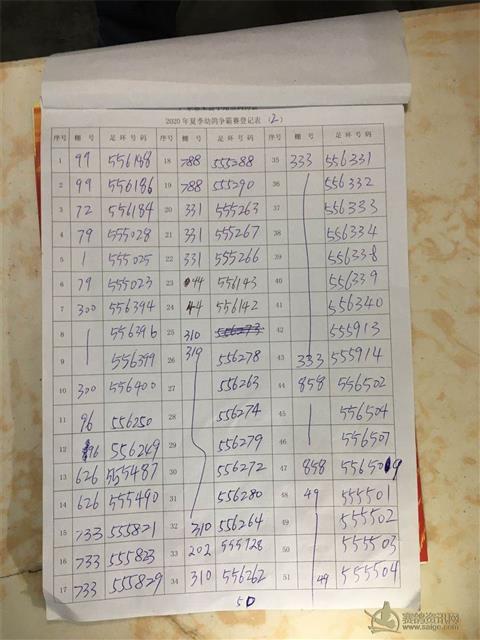 2020年夏季幼鸽争霸赛登记表（2）
序号 棚号 足环号码 序号 棚号 足环号码 序号 棚号 足环号码
1 99 556188 18 788 555288 35 333 556331
2 99 556186 19 788 555290 36 556332
3 72 556184 20 331 555263 37 556333
4 79 555028 21 331 555267 38 556334
5 1 555025 22 331 555266 39 556338
6 79 555023 23 44 556143 40 556339
7 300 556394 24 44 556142 41 556340
8 556396 25 310 556273 42 555913
9 556399 26 310 556278 43 333 555914
10 300 556400 27 556263 44 858 556502
11 96 556250 28 556274 45 556504
12 96 556249 29 556279 46 556507
13 626 555487 30 556272 47 858 556509
14 626 555490 31 556280 48 49 555501
15 733 555821 32 310 556264 49 555502
16 733 555823 33 202 555128 50 555503
17 733 555829 34 310 556262 51 49 555504
50
赛鸽资讯网
www.saige.com